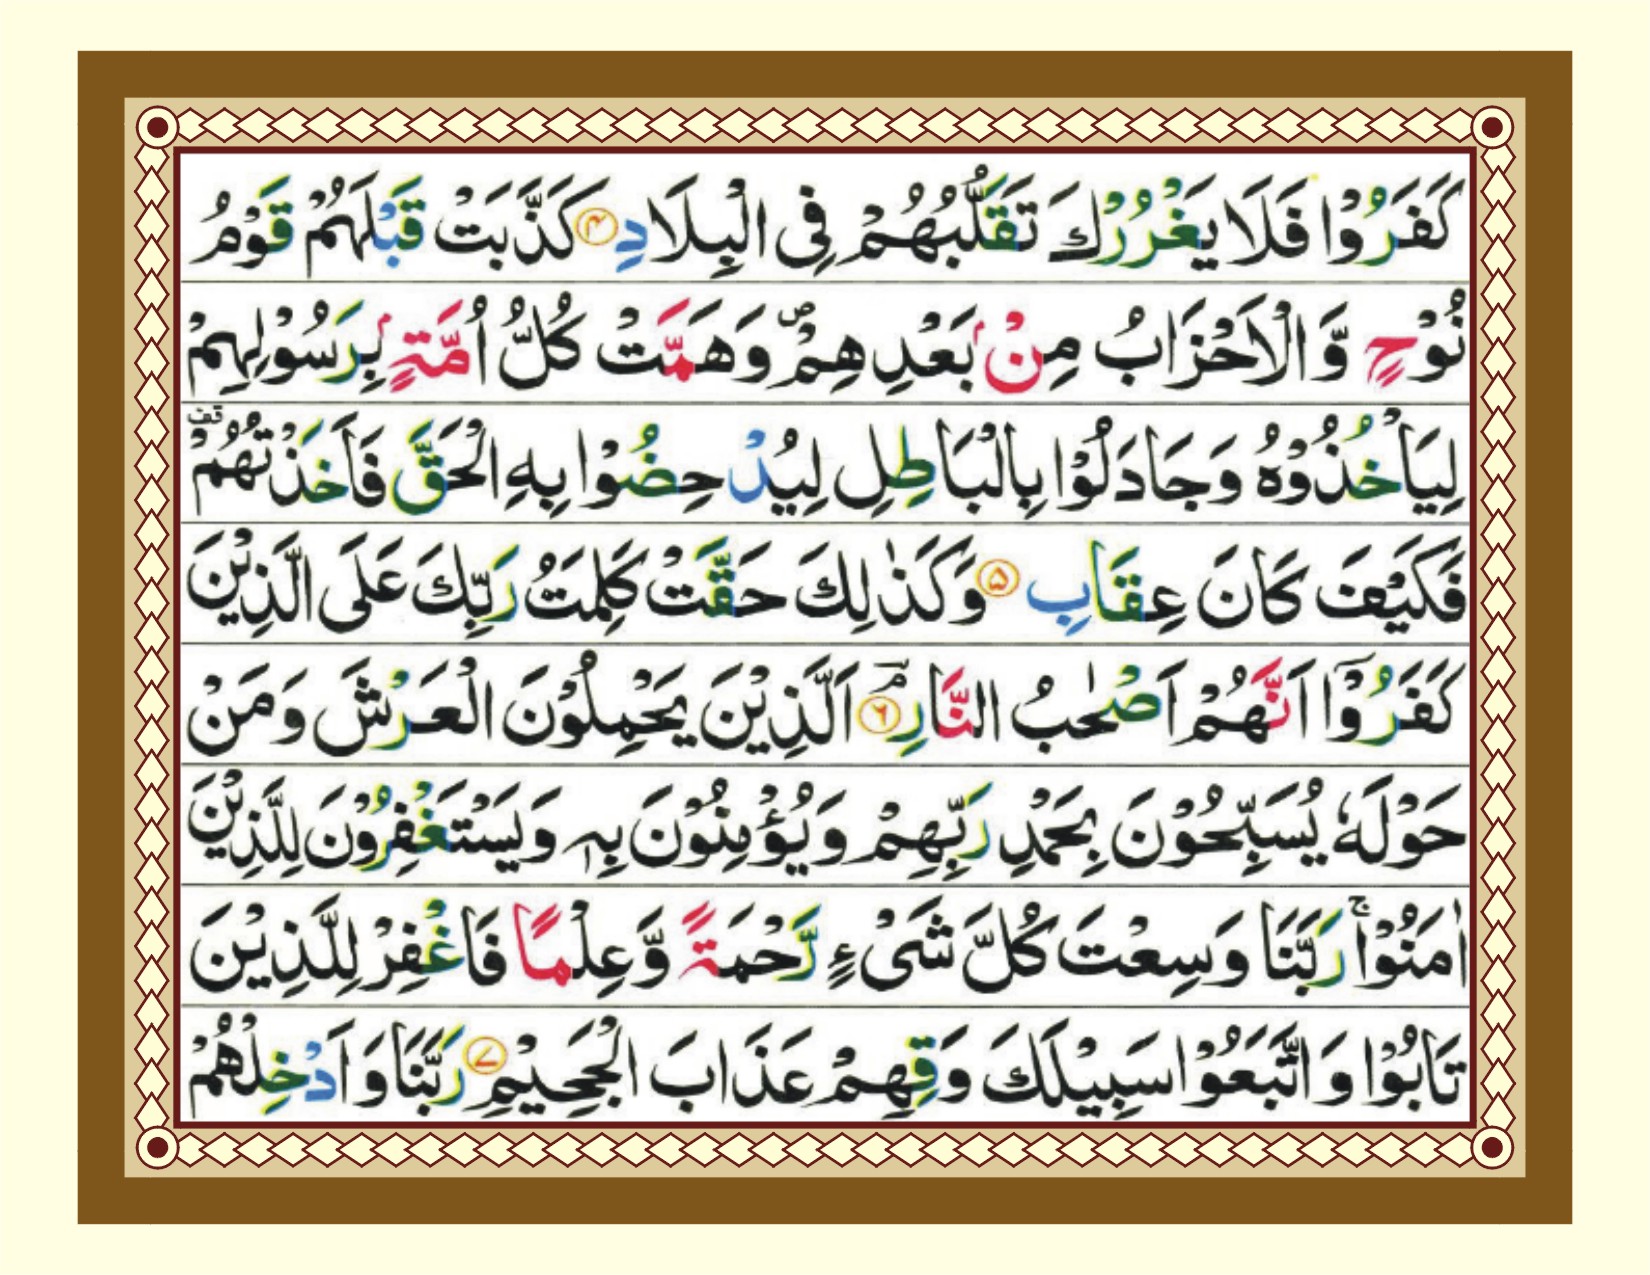 كَفَرُوْا فَلَا يَغْرُرْكَ تَقَلُّبُهُمْ فِى الْبِلَادِ ﴿۴﴾ كَذَّبَتْ قَبْلَهُمْ قَوْمُ
نُوْحٍ وَّ الْاَحْزَابُ مِنْۢ بَعْدِهِمْ ۪ وَهَمَّتْ كُلُّ اُمَّةٍۭ بِرَسُوْلِهِمْ
لِيَاْخُذُوْهُ وَجَادَلُوْا بِالْبَاطِلِ لِيُدْحِضُوْا بِهِ الْحَقَّ فَاَخَذْتُهُمْ قف
فَكَيْفَ كَانَ عِقَابِ ﴿۵﴾ وَكَذٰلِكَ حَقَّتْ كَلِمَتُ رَبِّكَ عَلَى الَّذِيْنَ
كَفَرُوْٓا اَنَّهُمْ اَصْحٰبُ النَّارِ ۘ﴿۶﴾ اَلَّذِيْنَ يَحْمِلُوْنَ الْعَرْشَ وَمَنْ
حَوْلَهٗ يُسَبِّحُوْنَ بِحَمْدِ رَبِّهِمْ وَيُؤْمِنُوْنَ بِهٖ وَيَسْتَغْفِرُوْنَ لِلَّذِيْنَ
اٰمَنُوْا ۚ رَبَّنَا وَسِعْتَ كُلَّ شَىْءٍ رَّحْمَةً وَّعِلْمًا فَاغْفِرْ لِلَّذِيْنَ
تَابُوْا وَ اتَّبَعُوْا سَبِيْلَكَ وَقِهِمْ عَذَابَ الْجَحِيْمِ ﴿۷﴾ رَبَّنَا وَ اَدْخِلْهُمْ